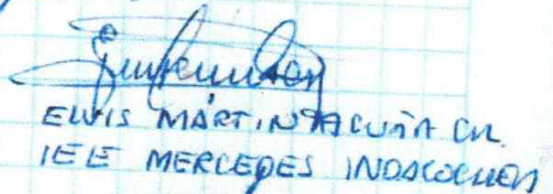 ELVIS MARTIN ACUÑA CH.
IEE MERCEDES INDACOCHEA